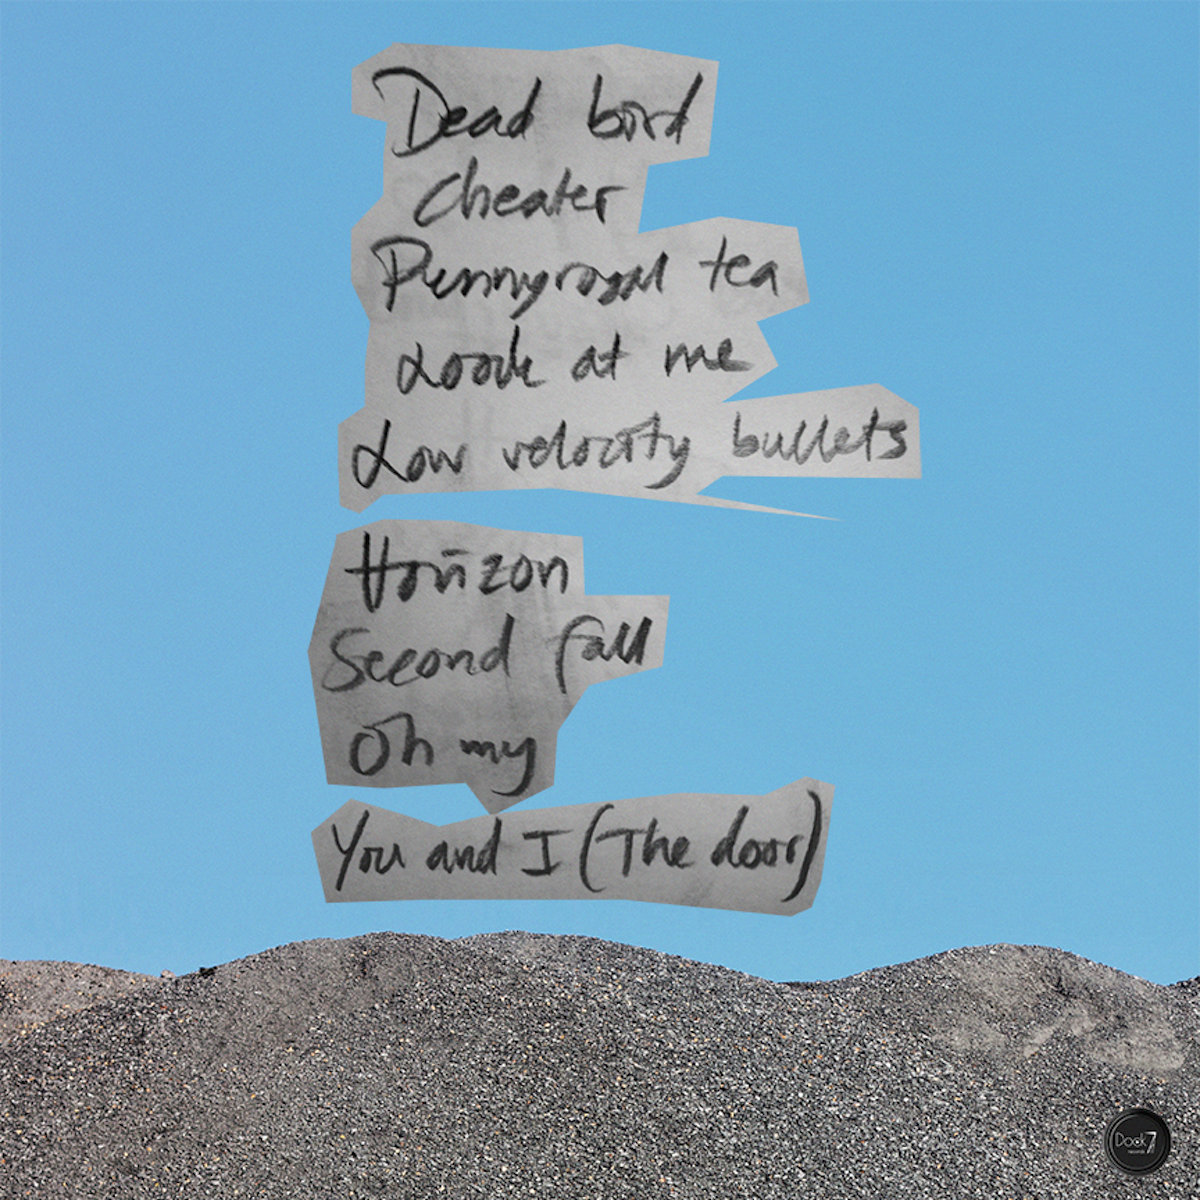 Dead bird
Cheater
Pennyroyal tea
Look at me
Low velocity bullets
Horizon
Second fall
Oh my
You and I (The door)
Dock 7
records